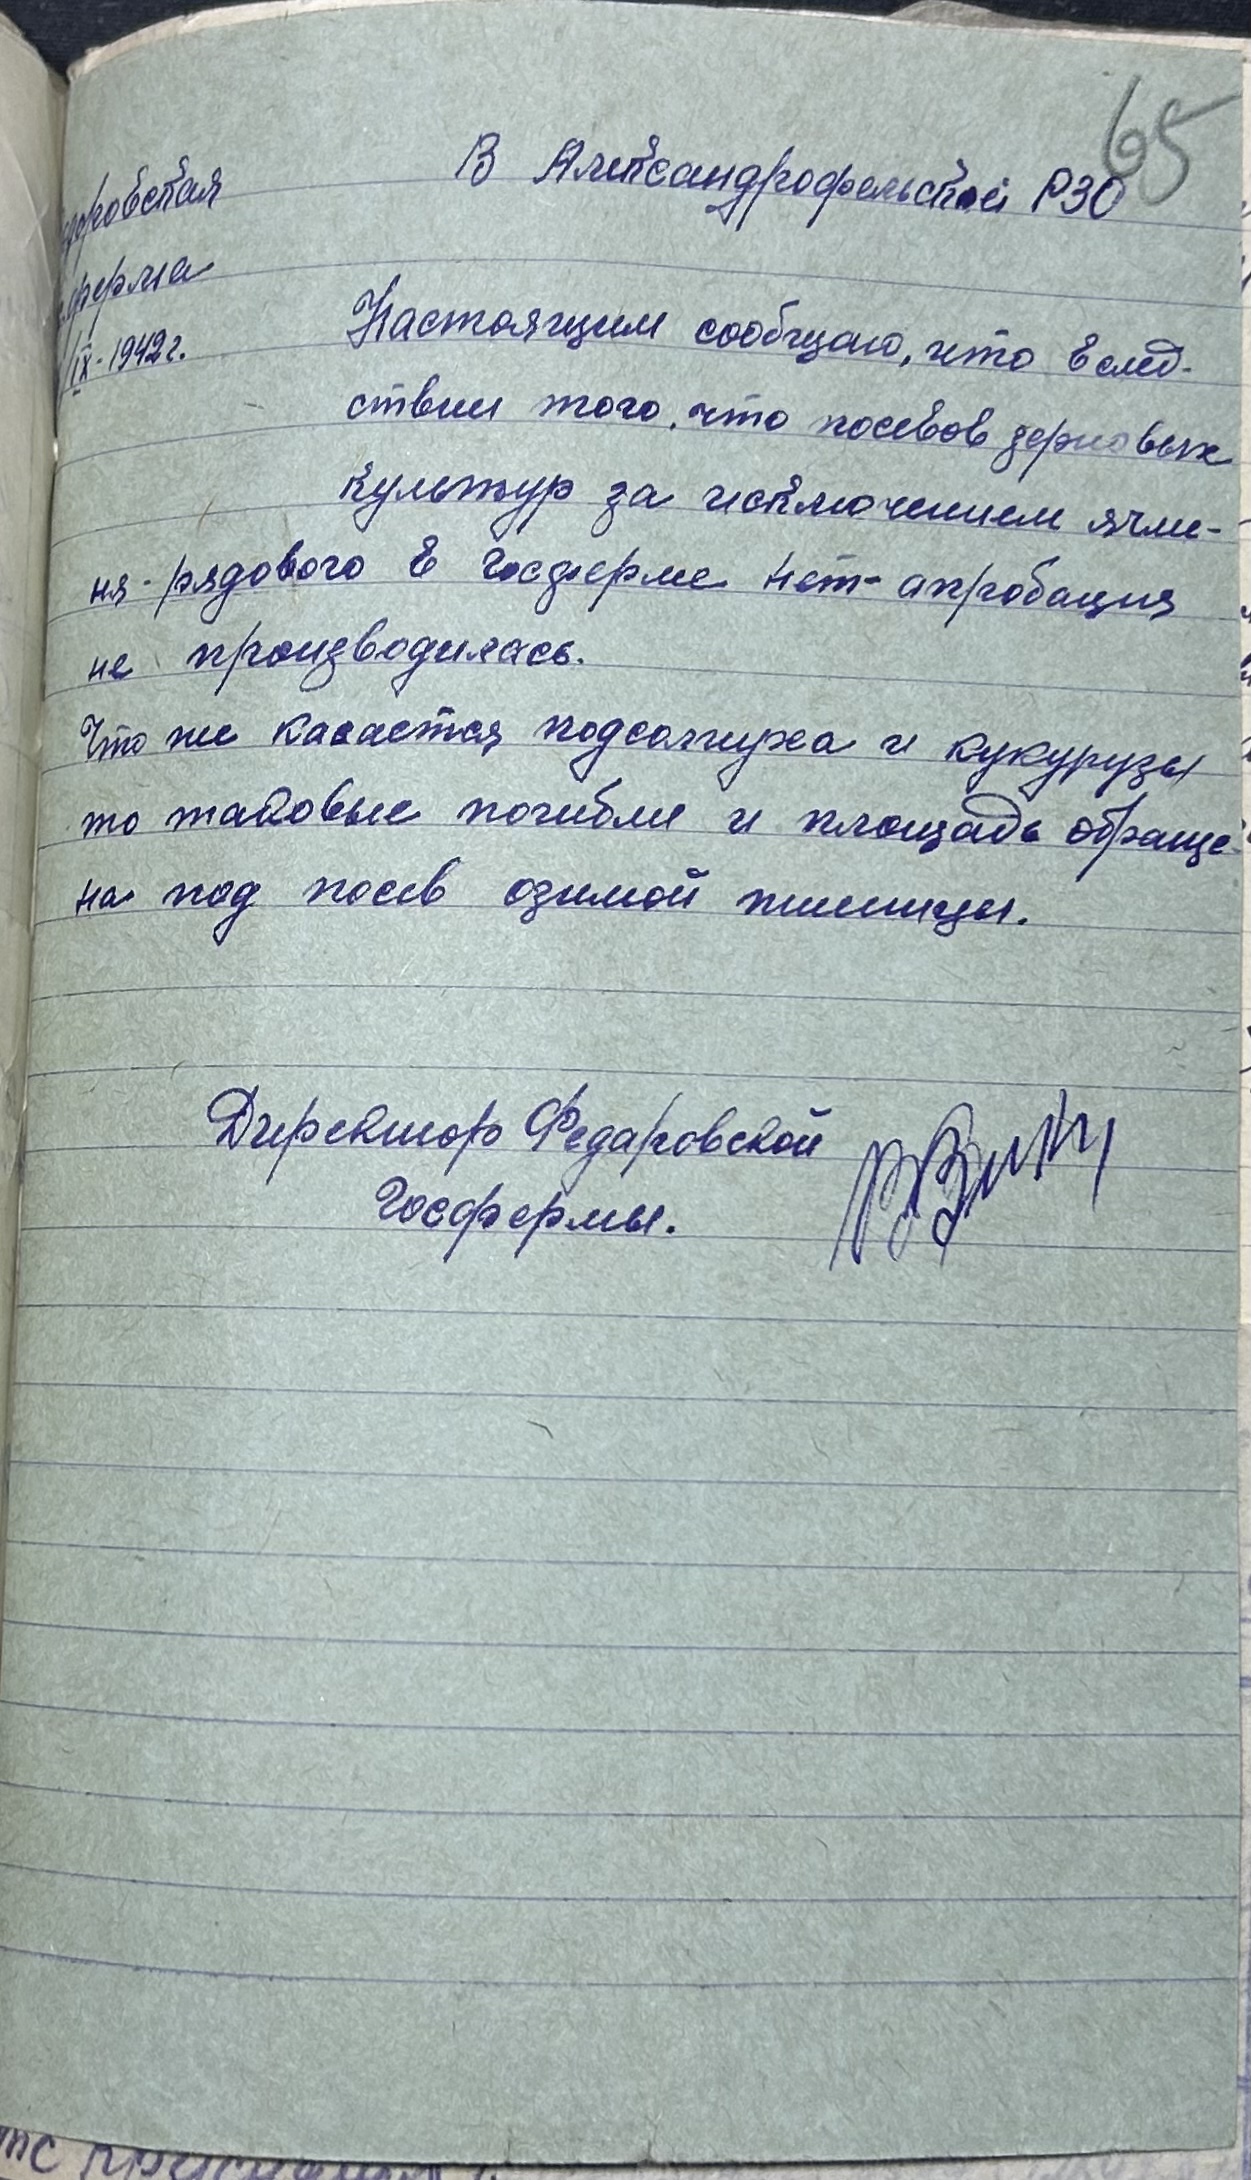 65
В Александрофельской РЗО
доровская
ферма
/IX-1942 г.
Настоящим сообщаю, что вслед-
ствии того, что посевов зерновых
культур за исключением ячме-
ня-рядового в Госферме нет-апробация
не производилась.
Что же касается подсолнуха и кукурузы
то таковые погибли и площадь обраще-
на под посев озимой пшеницы.
Директор Федаровской
Госфермы.